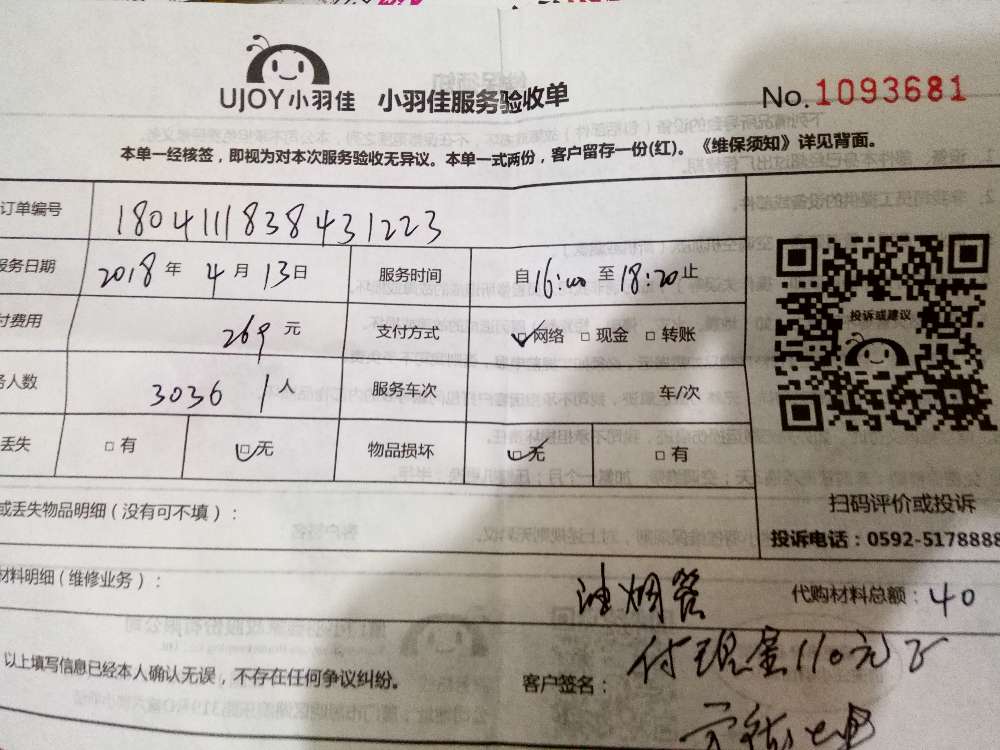 UJOY小羽佳 小羽佳服务验收单 No.1093681
本单一经核签，即视为对本次服务验收无异议。本单一式两份，客户留存一份(红)。《维保须知》详见背面。
订单编号 1804111838431223
服务日期 2018年4月13日 服务时间 自16:00至18:20止
付费用 269元 支付方式 □网络 □现金 □转账
务人数 3036 1人 服务车次 车/次
丢失 □有 □无 物品损坏 □无 □有
投诉或建议
或丢失物品明细（没有可不填）：
扫码评价或投诉
投诉电话：0592-5178888
材料明细（维修业务）： 油烟管 代购材料总额：40
付现金110元了
以上填写信息已经本人确认无误，不存在任何争议纠纷。 客户签名：